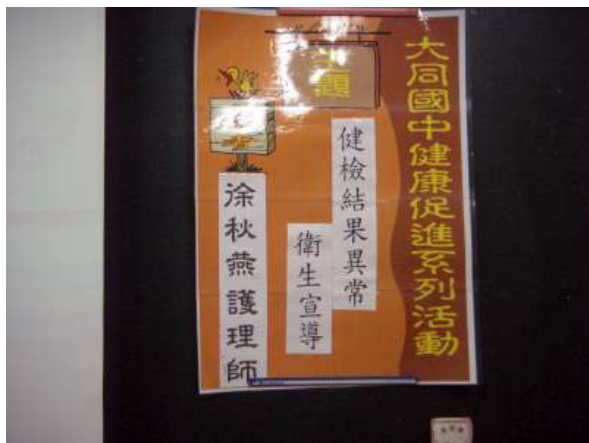 大同國中健康促進系列活動
主題
健檢結果異常
衛生宣導
徐秋燕護理師